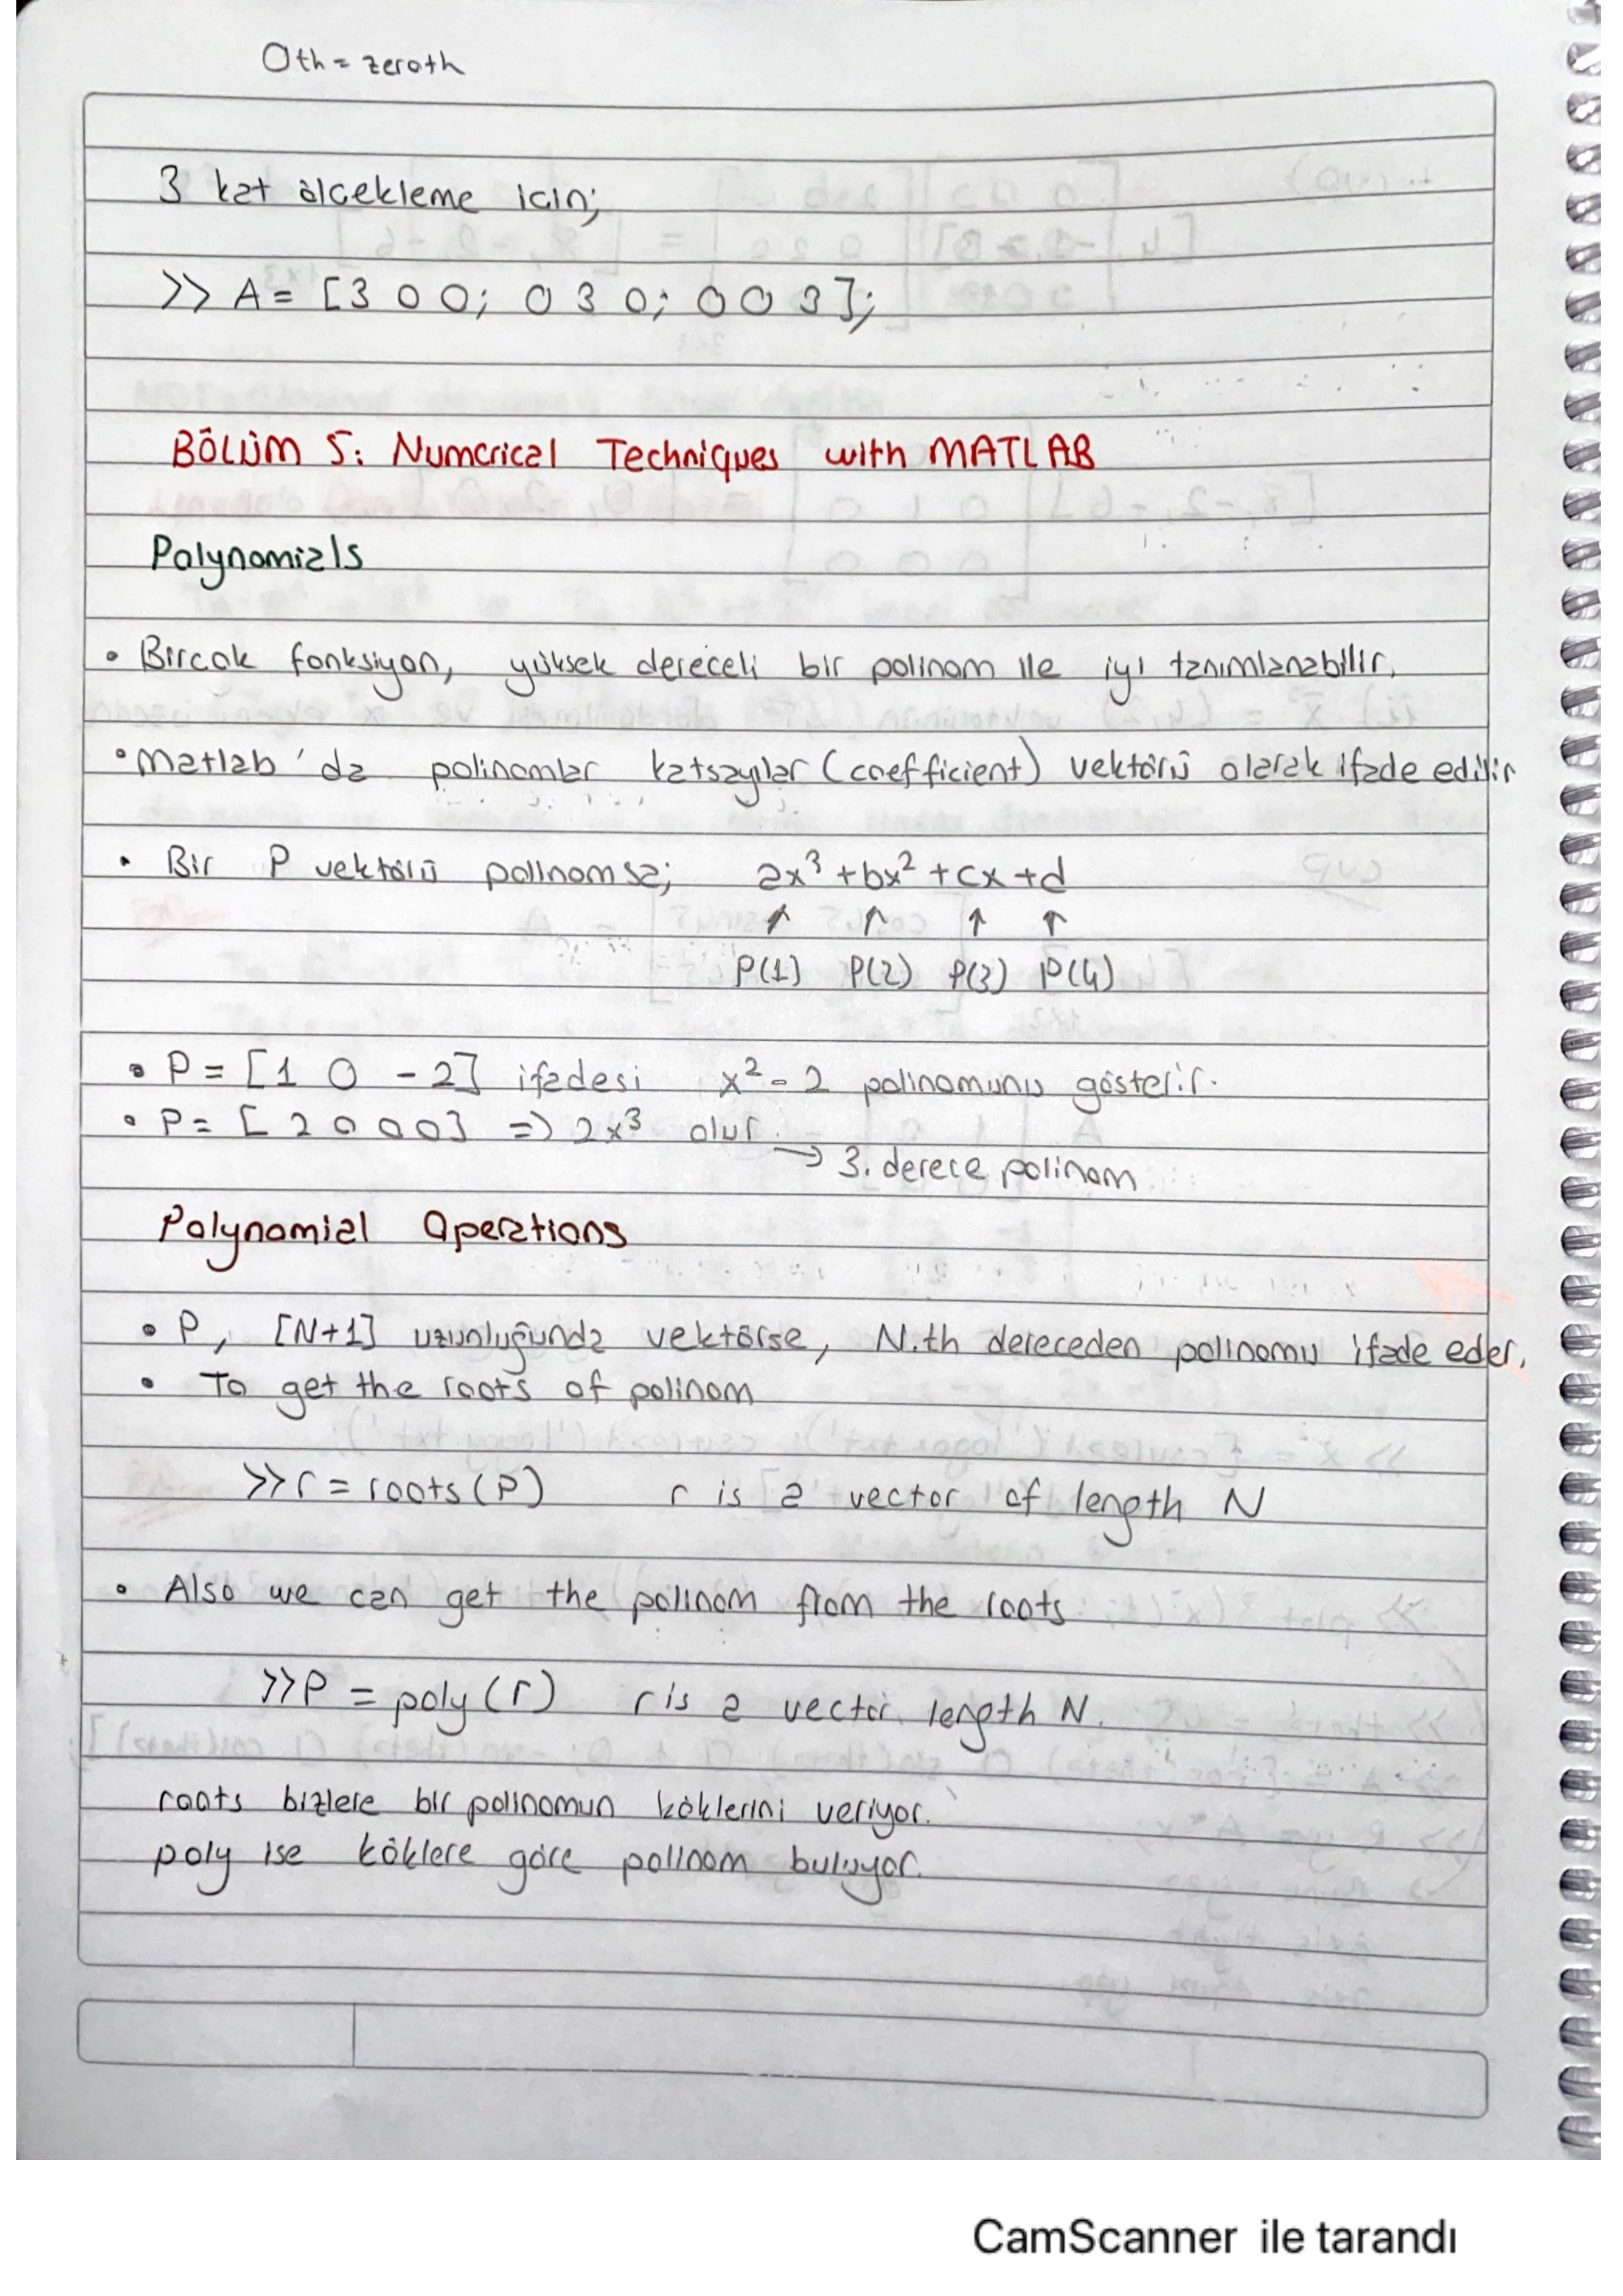 0th = zeroth
3 kat ölçekleme için;
>> A = [3 0 0; 0 3 0; 0 0 3];
BÖLÜM 5: Numerical Techniques with MATLAB
Polynomials
• Birçok fonksiyon, yüksek dereceli bir polinom ile iyi tanımlanabilir.
• Matlab'da polinomlar katsayılar (coefficient) vektörü olarak ifade edilir
• Bir P vektörü polinomsa; ax³ + bx² + cx + d
↑ ↑ ↑ ↑
P(1) P(2) P(3) P(4)
• P = [1 0 -2] ifadesi x² - 2 polinomunu gösterir.
• P = [2 0 0 0] => 2x³ olur.
→ 3. derece polinom
Polynomial Operations
• P, [N+1] uzunluğunda vektörse, N.th dereceden polinomu ifade eder.
• To get the roots of polinom
>> r = roots(P) r is a vector of length N
• Also we can get the polinom from the roots
>> P = poly(r) r is a vector length N.
roots bizlere bir polinomun köklerini veriyor.
poly ise köklere göre polinom buluyor.
CamScanner ile tarandı